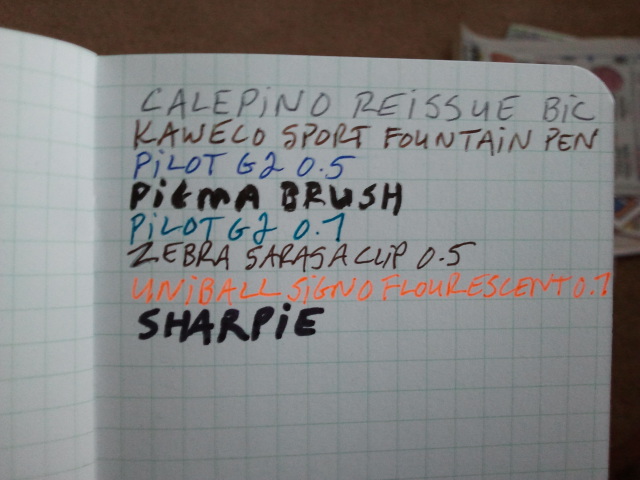 CALEPiNO REiSSUE BiC
KAWECO SPORT FOUNTAiN PEN
PiLOT G2 0.5
PiGMA BRUSH
PiLOT G2 0.7
ZEBRA SARASA CLiP 0.5
UNiBALL SiGNO FLOURESCENT 0.7
SHARPiE